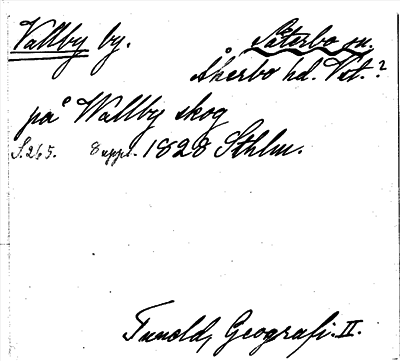 Vallby by. Säterbo sn.
Åkerbo hd. Vst.?
på Wallby skog
S. 265. 8 uppl. 1828 Sthlm.
Tuneld, Geografi. II.